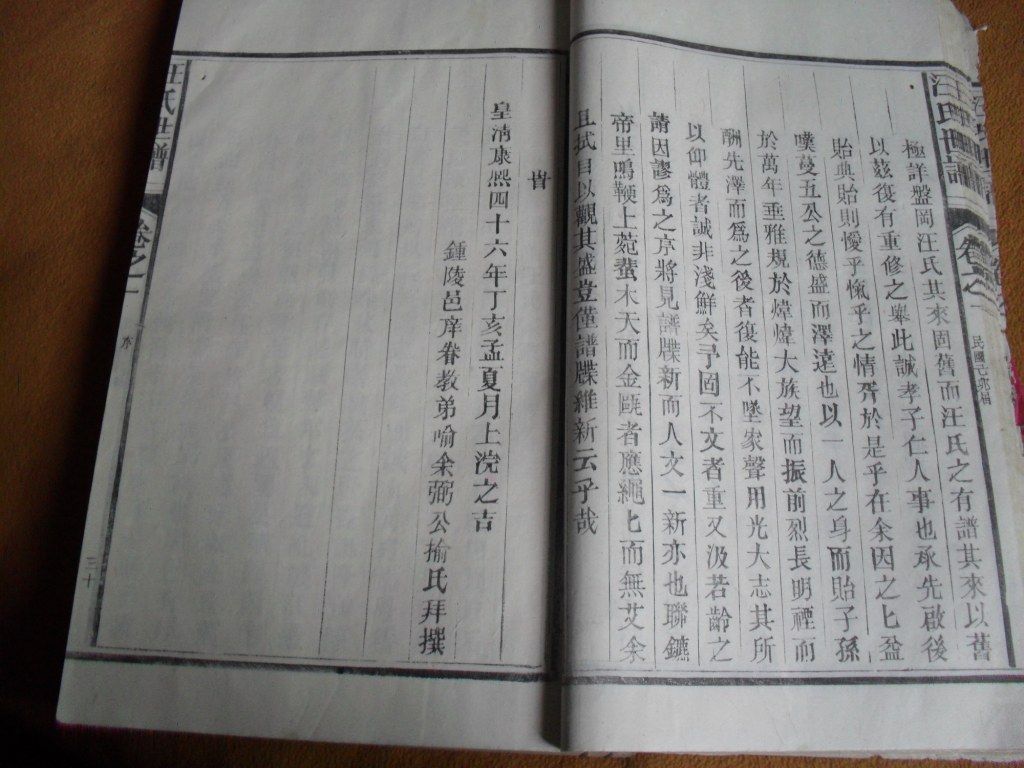 汪氏世譜
卷之一
極詳盤岡汪氏其來固舊而汪氏之有譜其來以舊
以茲復有重修之舉此誠孝子仁人事也承先啟後
貽典貽則懓乎愾乎之情胥於是乎在余因之匕盈
嘆蔓五公之德盛而澤遠也以一人之身而貽子孫
於萬年垂雅規於煒煒大族望而振前烈長明禋而
酬先澤而爲之後者復能不墜家聲用光大志其所
以仰體者誠非淺鮮矣予固不文者重又汲若齡之
請因謬爲之京將見譜牒新而人文一新亦也聯鑣
帝里鳴鞭上菀蜚木天而金甌者應繩匕而無艾余
且拭目以觀其盛豈僅譜牒維新云乎哉
旹
皇淸康熙四十六年丁亥孟夏月上浣之吉
鍾陵邑庠眷教弟喻余弼公揄氏拜撰
汪氏世譜
卷之一
三十